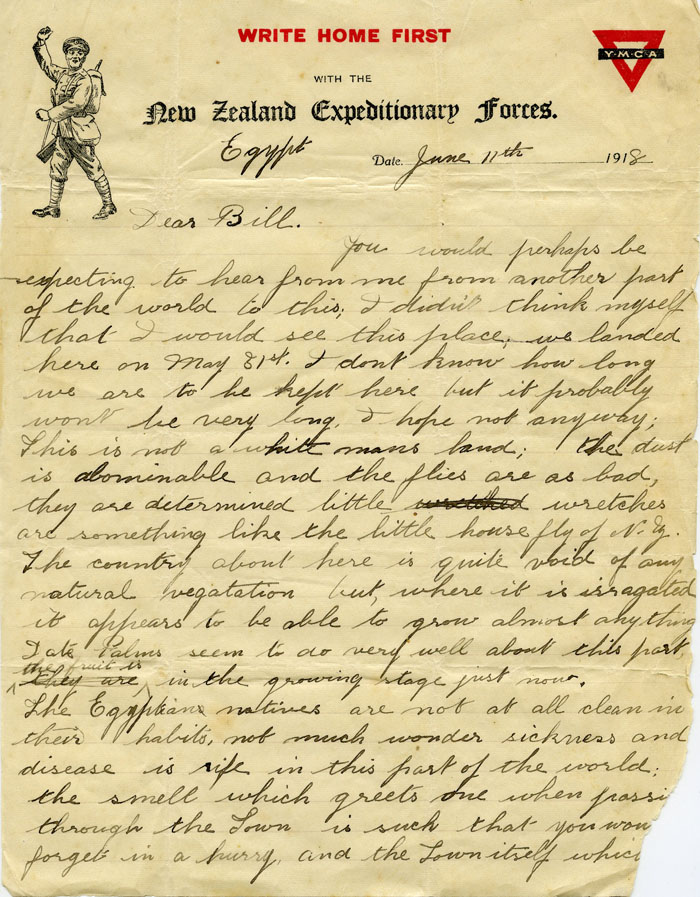 WRITE HOME FIRST
Y·M·C·A
WITH THE
New Zealand Expeditionary Forces.
Egypt
Date June 11th 1918
Dear Bill.
You would perhaps be
expecting to hear from me from another part
of the world to this; I didn't think myself
that I would see this place; we landed
here on May 31st. I dont know how long
we are to be kept here but it probably
wont be very long, I hope not anyway;
This is not a white mans land; the dust
is abominable and the flies are as bad,
they are determined little wretched wretches
are something like the little house fly of N.Z.
The country about here is quite void of any
natural vegatation but, where it is irragated
it appears to be able to grow almost anything
Date Palms seem to do very well about this part,
the fruit is
They are in the growing stage just now.
The Egyptians natives are not at all clean in
their habits, not much wonder sickness and
disease is rife in this part of the world;
the smell which greets one when passi
through the Town is such that you won
forget in a hurry, and the Town itself whic